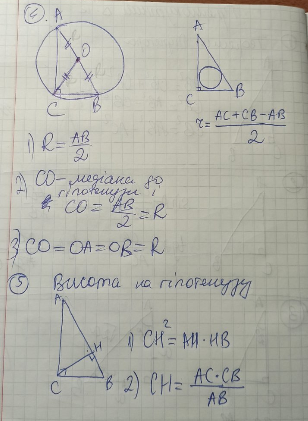 4
A
O
C B
A
C B
r = AC+CB-AB / 2
1) R = AB / 2
2) CO - медіана до
гіпотенузи,
CO = AB / 2 = R
3) CO = OA = OB = R
5 Висота на гіпотенузу
A
H
C B
1) CH² = AH · HB
2) CH = AC · CB / AB